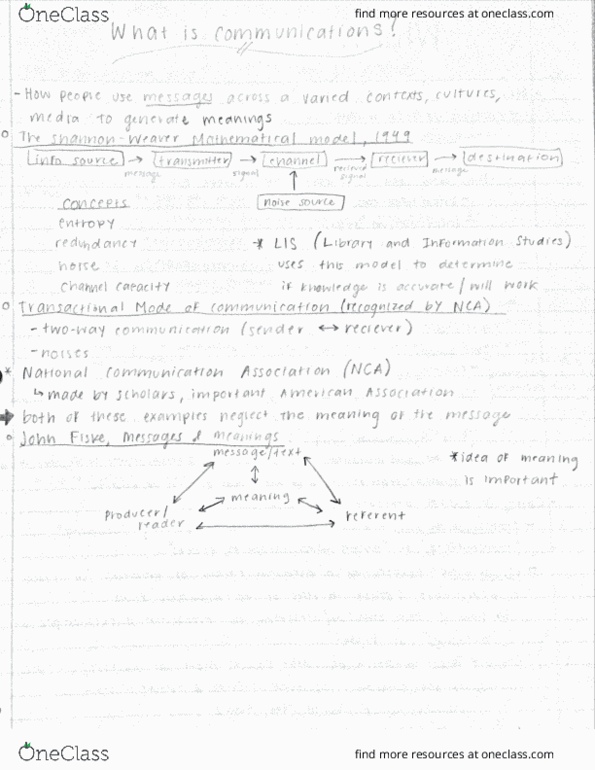 OneClass
find more resources at oneclass.com
What is communications?
- How people use messages across a varied contexts, cultures,
media to generate meanings
The Shannon-Weaver Mathematical model, 1949
info source → transmitter → channel → reciever → destination
message signal recieved signal message
noise source
concepts
entropy
redundancy
noise
channel capacity
* LIS (Library and Information Studies)
uses this model to determine
if knowledge is accurate/will work
Transactional Mode of communication (recognized by NCA)
- two-way communication (sender ↔ reciever)
- noises
* National Communication Association (NCA)
↳ made by scholars, important American Association
→ both of these examples neglect the meaning of the message
John Fiske, messages & meanings
message/text
meaning
producer/
reader
referent
* idea of meaning
is important
OneClass
find more resources at oneclass.com